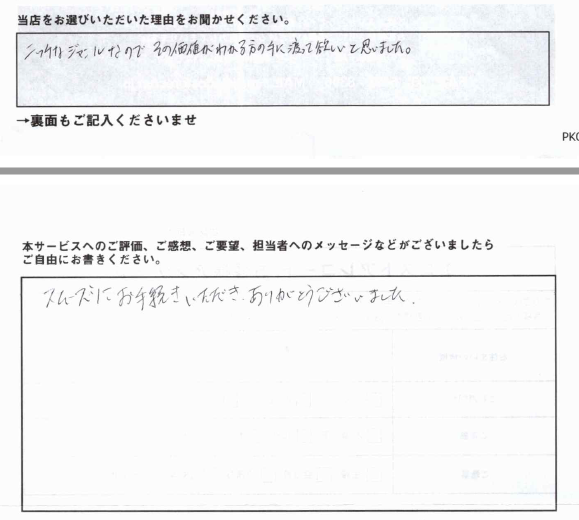 当店をお選びいただいた理由をお聞かせください。
ニッチなジャンルなので その価値がわかる方の手に渡って欲しいと思いました。
→裏面もご記入くださいませ
PKC
本サービスへのご評価、ご感想、ご要望、担当者へのメッセージなどがございましたら
ご自由にお書きください。
スムーズにお手続きいただき、ありがとうございました.